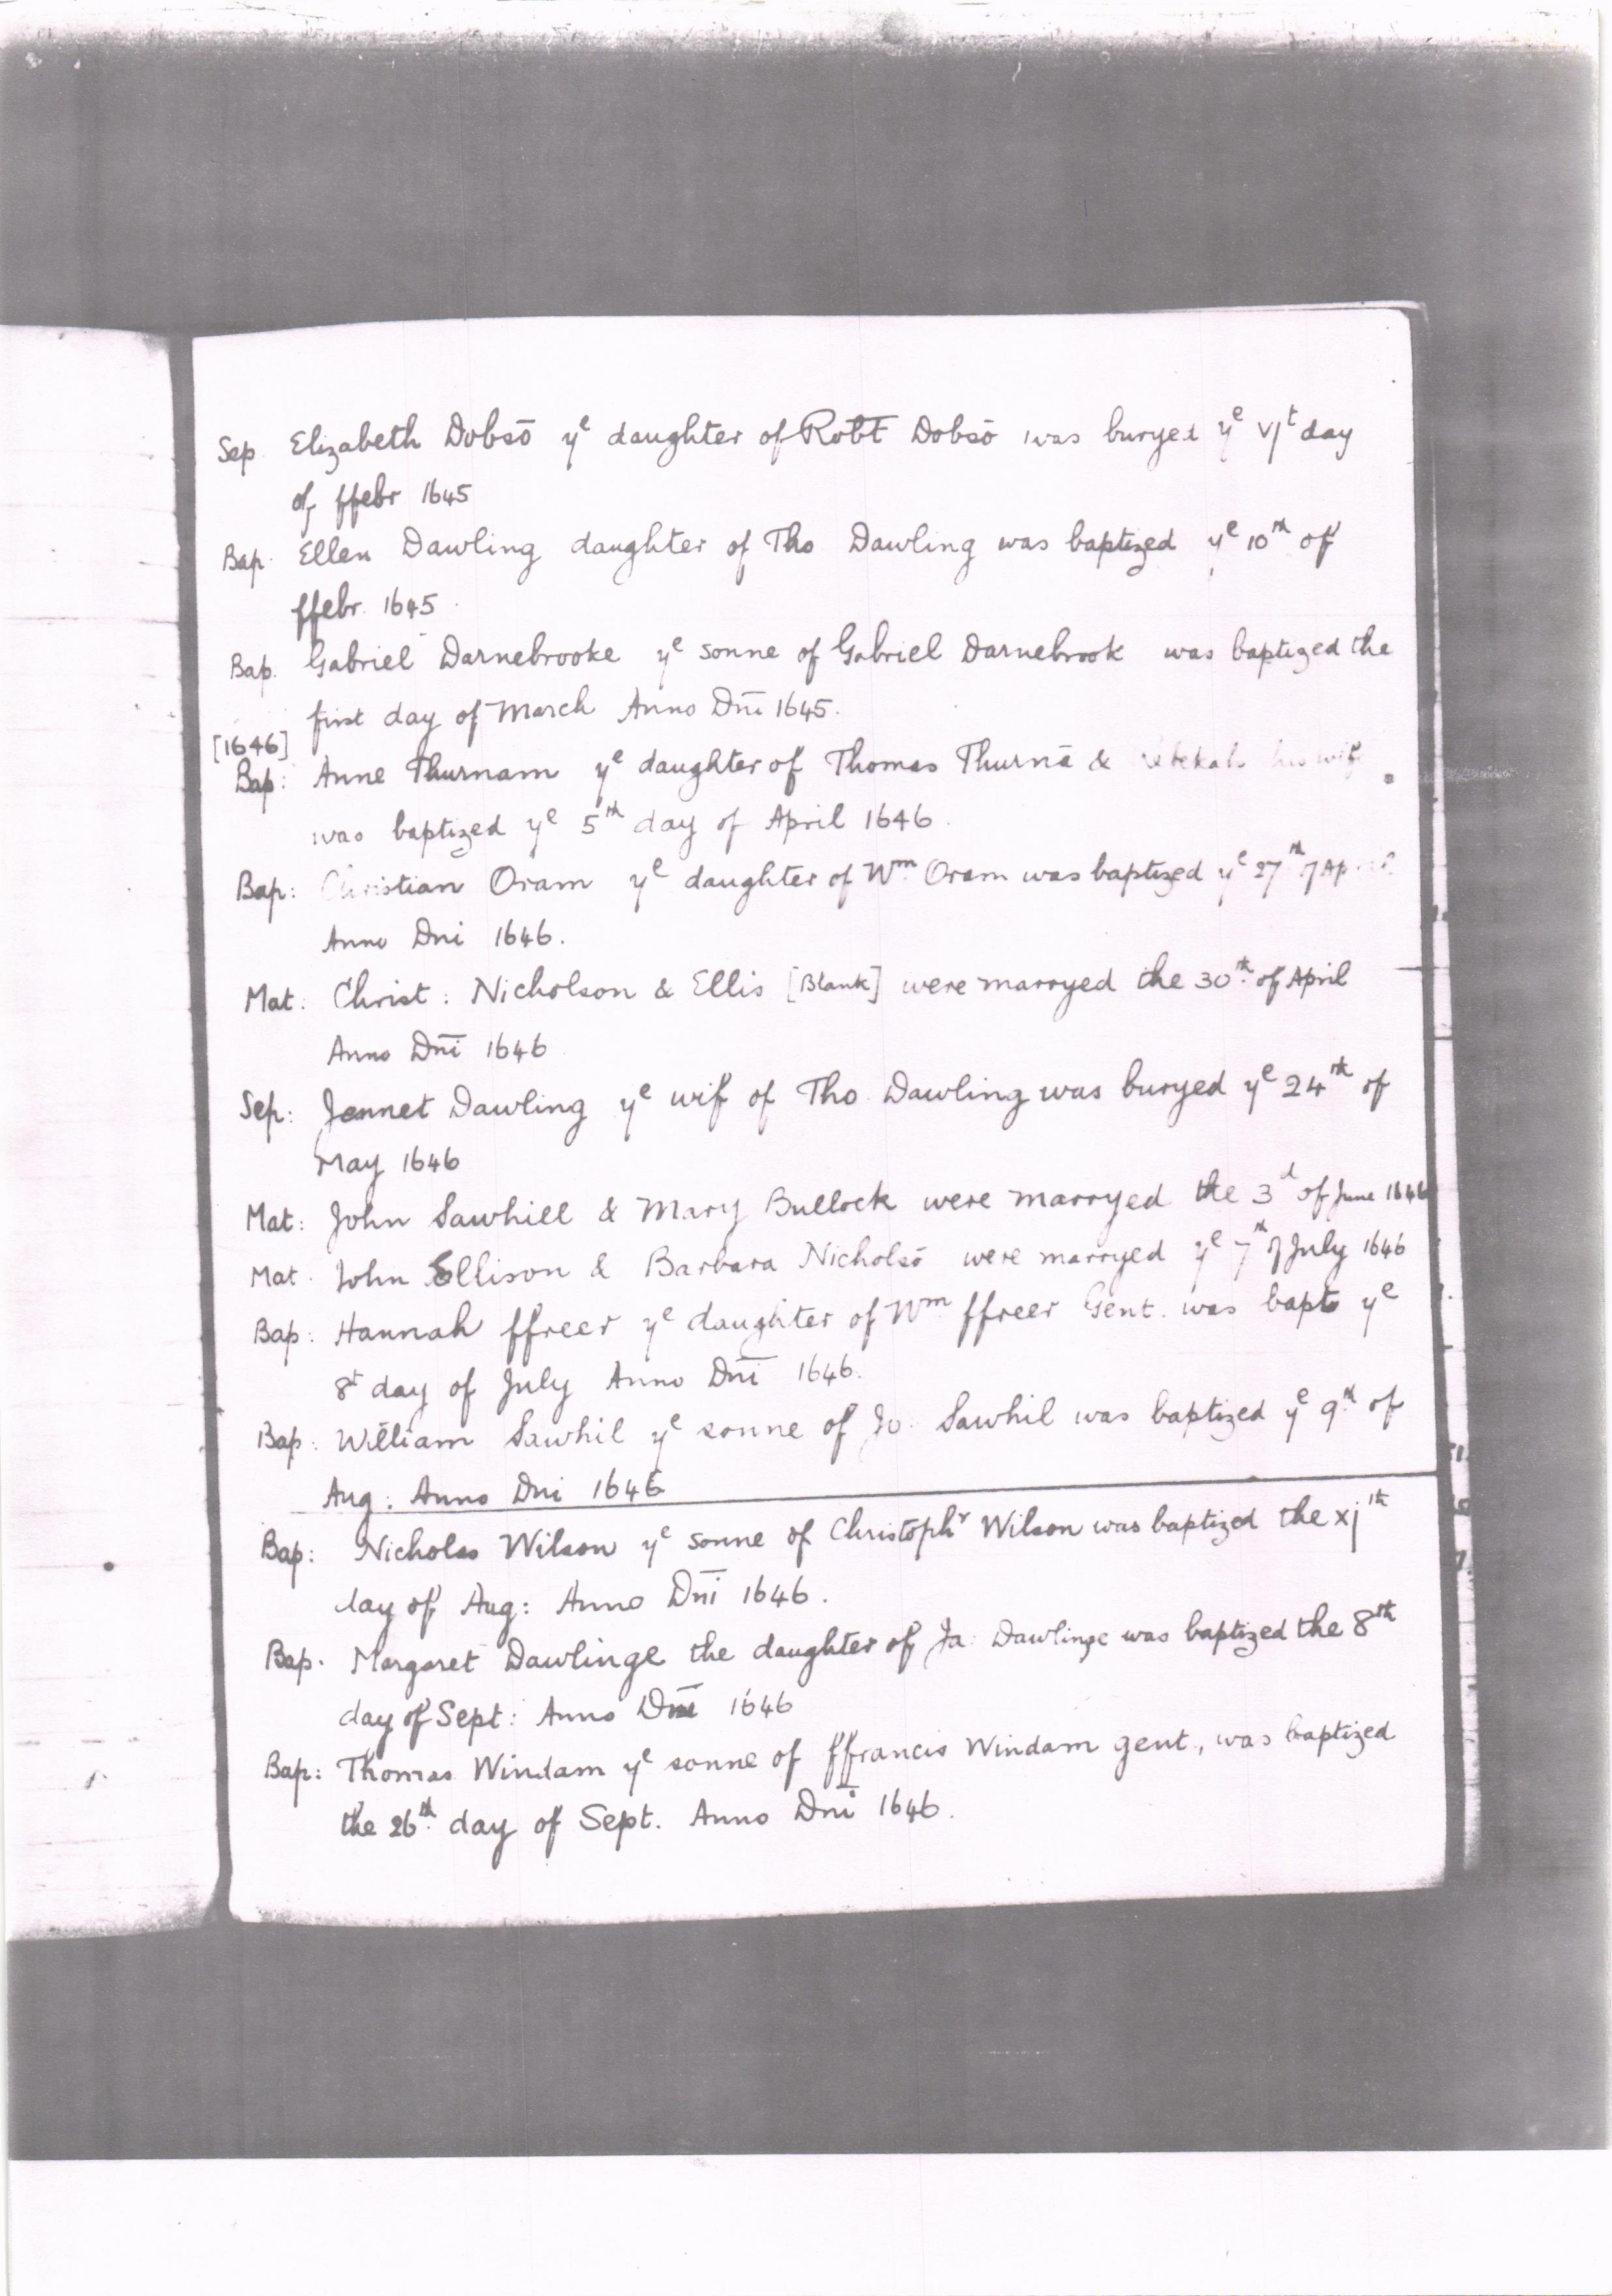 Sep Elizabeth Dobsō yᵉ daughter of Robt Dobsō was buryed yᵉ vjᵗ day
of ffebr 1645
Bap. Ellen Dawling daughter of Tho Dawling was baptized yᵉ 10ᵗʰ of
ffebr. 1645.
Bap. Gabriel Darnebrooke yᵉ sonne of Gabriel Darnebrook was baptized the
first day of March Anno Dn̄i 1645.
[1646]
Bap: Anne Thurnam yᵉ daughter of Thomas Thurnā & Rebekah his wife
was baptized yᵉ 5ᵗʰ day of April 1646.
Bap: Christian Oram yᵉ daughter of Wᵐ Oram was baptized yᵉ 27ᵗʰ of April
Anno Dni 1646.
Mat: Christ: Nicholson & Ellis [Blank] were marryed the 30ᵗʰ of April
Anno Dn̄i 1646
Sep: Jennet Dawling yᵉ wif of Tho Dawling was buryed yᵉ 24ᵗʰ of
May 1646
Mat: John Sawhill & Mary Bullock were marryed the 3ᵈ of June 1646
Mat. John Ellison & Barbara Nicholsō were marryed yᵉ 7ᵗʰ of July 1646
Bap: Hannah ffreer yᵉ daughter of Wᵐ ffreer Gent. was bapt yᵉ
8ᵗ day of July Anno Dn̄i 1646.
Bap: William Sawhil yᵉ sonne of Jo: Sawhil was baptized yᵉ 9ᵗʰ of
Aug: Anno Dni 1646
Bap: Nicholas Wilson yᵉ sonne of Christophʳ Wilson was baptized the xjᵗʰ
day of Aug: Anno Dn̄i 1646.
Bap. Margaret Dawlinge the daughter of Ja: Dawlinge was baptized the 8ᵗʰ
day of Sept: Anno Dn̄i 1646
Bap: Thomas Windam yᵉ sonne of ffrancis Windam gent, was baptized
the 26ᵗʰ day of Sept. Anno Dn̄i 1646.